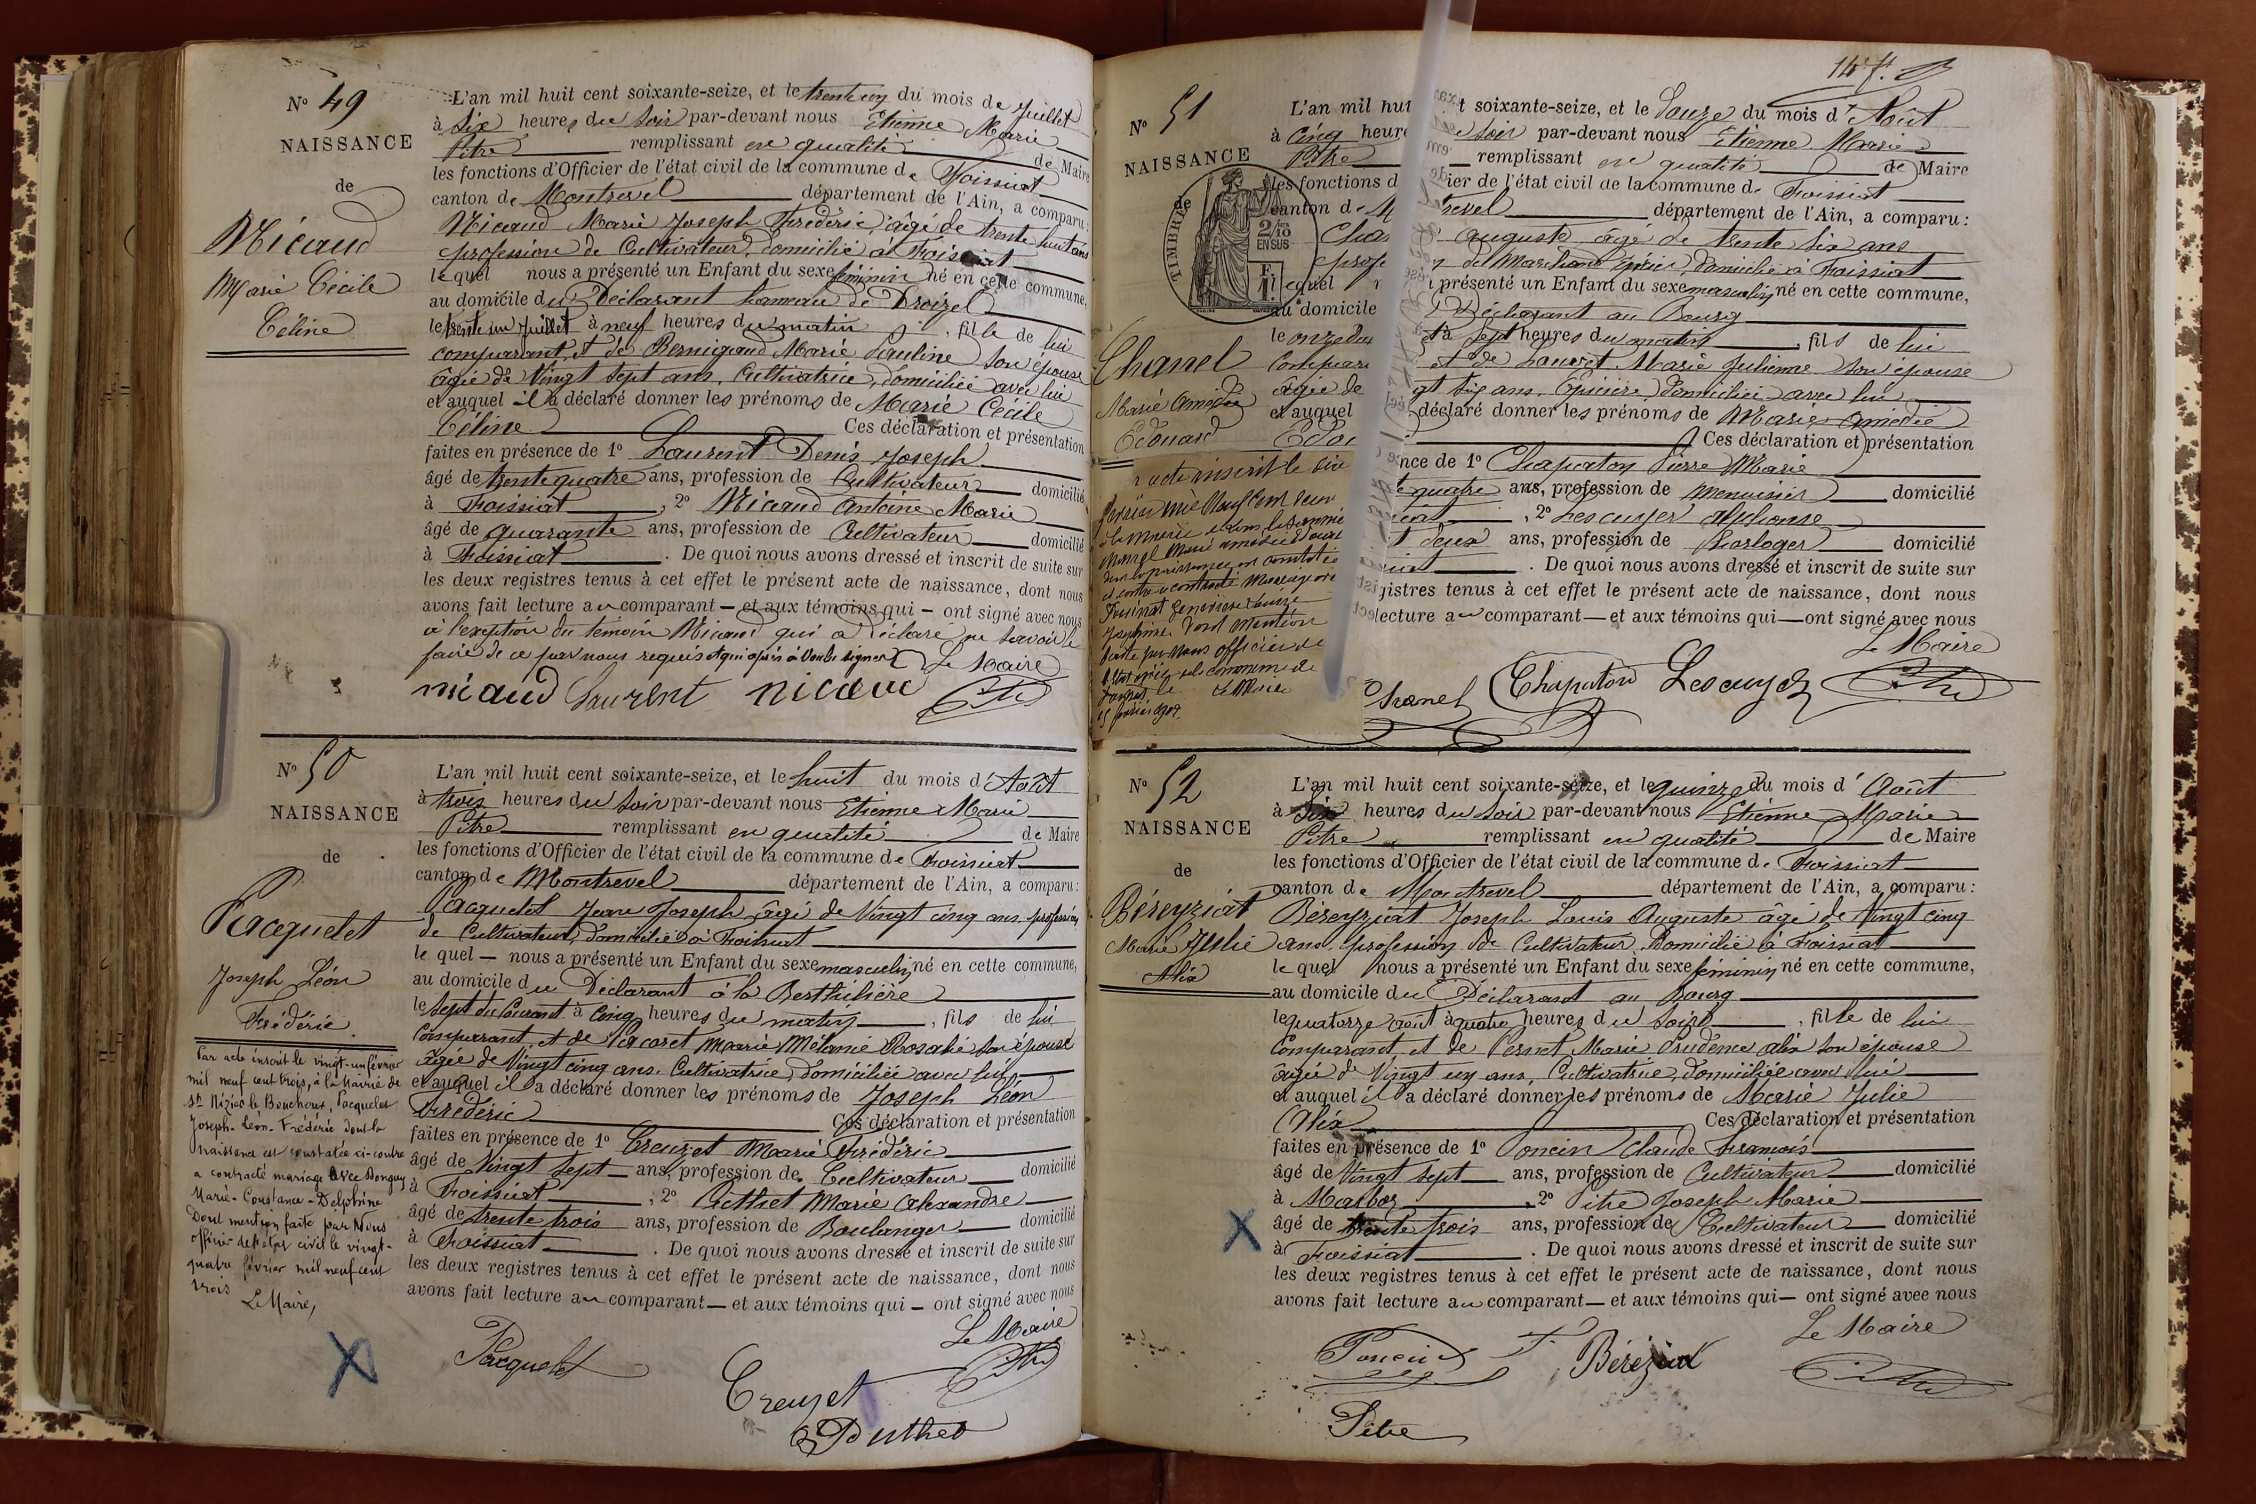 N° 49
NAISSANCE
de
Nicaud
Marie Cécile
Céline
L'an mil huit cent soixante-seize, et le trente un du mois de Juillet
à six heures du soir par-devant nous Etienne Marie
Pitre remplissant en qualité de Maire
les fonctions d'Officier de l'état civil de la commune de Foissiat
canton de Montrevel département de l'Ain, a comparu:
Nicaud Marie Joseph Frédéric, âgé de trente huit ans
profession de Cultivateur, domicilié à Foissiat
lequel nous a présenté un Enfant du sexe féminin né en cette commune,
au domicile du Déclarant hameau de Droizel
le trente un Juillet à neuf heures du matin, fille de lui
comparant, et de Bernigaud Marie Pauline son épouse
âgée de Vingt sept ans, Cultivatrice, domiciliée avec lui
et auquel il a déclaré donner les prénoms de Marie Cécile
Céline Ces déclaration et présentation
faites en présence de 1° Laurent Denis Joseph
âgé de trente quatre ans, profession de Cultivateur domicilié
à Foissiat, 2° Nicaud Antoine Marie
âgé de quarante ans, profession de Cultivateur domicilié
à Foissiat. De quoi nous avons dressé et inscrit de suite sur
les deux registres tenus à cet effet le présent acte de naissance, dont nous
avons fait lecture au comparant — et aux témoins qui — ont signé avec nous
à l'exception du témoin Nicaud qui a déclaré ne savoir le
faire de ce par nous requis et qui après a voulu signer Le Maire
nicaud Laurent nicaud Pitre
N° 50
NAISSANCE
de
Pacquelet
Joseph Léon
Frédéric.
Par acte inscrit le vingt-un février
mil neuf cent trois, à la Mairie de
St Nizier le Bouchoux, Pacquelet
Joseph-Léon-Frédéric dont la
naissance est constatée ci-contre
a contracté mariage avec Donguy
Marie-Constance-Delphine
Dont mention faite par Nous
officier de l'état civil le vingt-
quatre février mil neuf cent
trois
Le Maire,
L'an mil huit cent soixante-seize, et le huit du mois d'Août
à trois heures du soir par-devant nous Etienne Marie
Pitre remplissant en qualité de Maire
les fonctions d'Officier de l'état civil de la commune de Foissiat
canton de Montrevel département de l'Ain, a comparu:
Pacquelet Jean Joseph, âgé de Vingt cinq ans profession
de Cultivateur, domicilié à Foissiat
le quel — nous a présenté un Enfant du sexe masculin né en cette commune,
au domicile du Déclarant à la Berthilière
le sept du Courant à cinq heures du matin, fils de lui
Comparant, et de Pacoret Marie Mélanie Rosalie son épouse
âgée de Vingt cinq ans Cultivatrice, domiciliée avec lui
et auquel il a déclaré donner les prénoms de Joseph Léon
Frédéric Ces déclaration et présentation
faites en présence de 1° Creuzet Marie Frédéric
âgé de Vingt sept ans, profession de Cultivateur domicilié
à Foissiat, 2° Puthet Marie Alexandre
âgé de trente trois ans, profession de Boulanger domicilié
à Foissiat. De quoi nous avons dressé et inscrit de suite sur
les deux registres tenus à cet effet le présent acte de naissance, dont nous
avons fait lecture au comparant — et aux témoins qui — ont signé avec nous
Le Maire
Pacquelet Creuzet Pitre
Puthet
147.
N° 51
NAISSANCE
de
TIMBRE
2/10 EN SUS
Chanel
Marie Amédée
Edouard
L'an mil huit soixante-seize, et le Douze du mois d'Août
à cinq heure soir par-devant nous Etienne Marie
Pitre remplissant en qualité de Maire
les fonctions d ier de l'état civil de la commune de Foissiat
canton de M revel département de l'Ain, a comparu:
Chan Auguste âgé de trente six ans
prof de Marchand épicier, domicilié à Foissiat
lequel présenté un Enfant du sexe masculin né en cette commune,
au domicile Déclarant au Bourg
le onze du à sept heures du matin, fils de lui
Compara et de Louvet Marie Julienne son épouse
âgée de gt six ans, Épicière, domiciliée avec lui
et auquel déclaré donner les prénoms de Marie Amédée
Edou Ces déclaration et présentation
nce de 1° Chapaton Pierre Marie
quatre ans, profession de menuisier domicilié
, 2° Lescuyer Alphonse
deux ans, profession de Horloger domicilié
. De quoi nous avons dressé et inscrit de suite sur
gistres tenus à cet effet le présent acte de naissance, dont nous
lecture au comparant — et aux témoins qui — ont signé avec nous
Le Maire
Chanel Chapaton Lescuyer Pitre
acte inscrit le six
mil neuf cent
la mairie
Chanel Marie Amédée Edouard
dont la naissance est constatée
ci contre a contracté mariage avec
Geneviève Louise
Joséphine Dont Mention
faite par Nous officier de
l'état civil de la commune de
le Le Maire
N° 52
NAISSANCE
de
Béreyziat
Marie Julie
Alix
L'an mil huit cent soixante-seize, et le quinze du mois d'Août
à six heures du soir par-devant nous Etienne Marie
Pitre remplissant en qualité de Maire
les fonctions d'Officier de l'état civil de la commune de Foissiat
canton de Montrevel département de l'Ain, a comparu:
Béreyziat Joseph Louis Auguste âgé de Vingt cinq
ans, profession de Cultivateur, Domicilié à Foissiat
le quel nous a présenté un Enfant du sexe féminin né en cette commune,
au domicile du Déclarant au Bourg
le quatorze août à quatre heures du soir, fille de lui
Comparant et de Pernet Marie Prudence Alix son épouse
âgée de Vingt un ans, Cultivatrice, domiciliée avec lui
et auquel il a déclaré donner les prénoms de Marie Julie
Alix Ces déclaration et présentation
faites en présence de 1° Poncin Claude François
âgé de Vingt sept ans, profession de Cultivateur domicilié
à Marboz, 2° Pitre Joseph Marie
âgé de trente trois ans, profession de Cultivateur domicilié
à Foissiat. De quoi nous avons dressé et inscrit de suite sur
les deux registres tenus à cet effet le présent acte de naissance, dont nous
avons fait lecture au comparant — et aux témoins qui — ont signé avec nous
Le Maire
Poncin F. Béréziat Pitre
Pitre